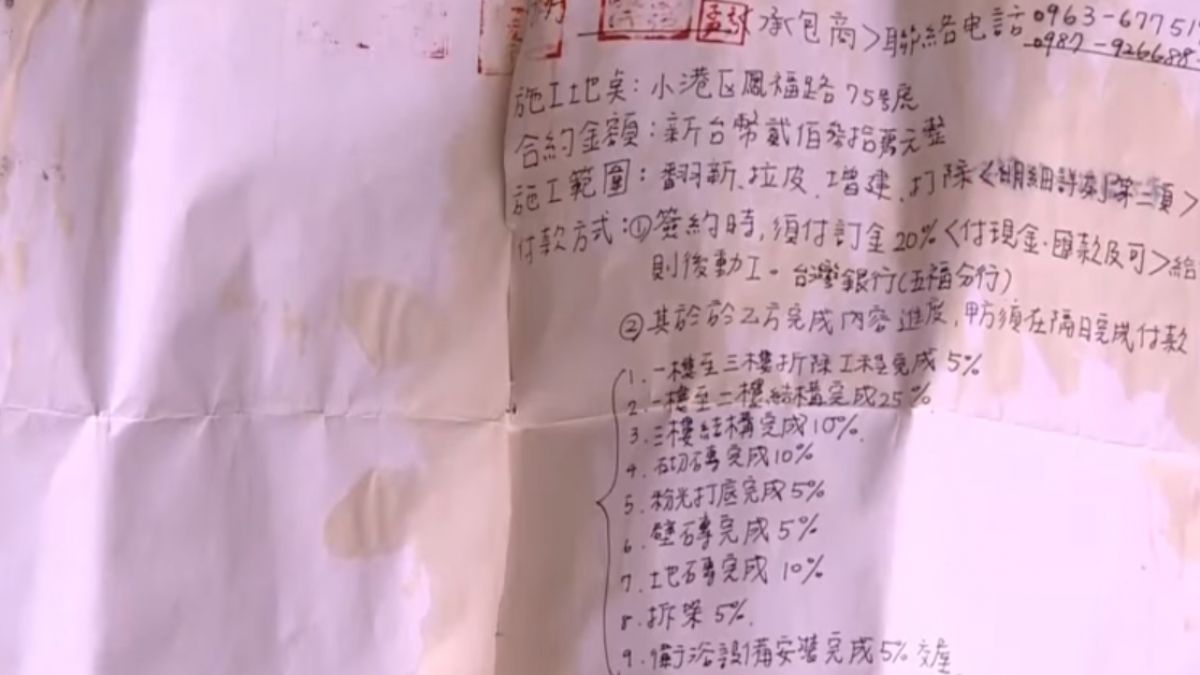 承包商>聯絡电話 0963-67751
0987-926688
施工地奌:小港区鳳福路75號
合約金額:新台幣貳佰參拾萬元整
施工範圍:翻新.拉皮.增建.打除<明細詳列第三項>
付款方式:①簽約時,須付訂金20%<付現金.匯款及可>給
則後動工。台灣銀行(五福分行)
②其於於乙方完成內容進度,甲方須在隔日完成付款
1.一樓至三樓拆除工程完成5%
2.一樓至二樓結構完成25%
3.三樓結構完成10%.
4.砌磚完成10%
5.粉光打底完成5%
6.壁磚完成5%
7.土地磚完成10%
8.拆架5%.
9.衛浴設備安裝完成5%交屋